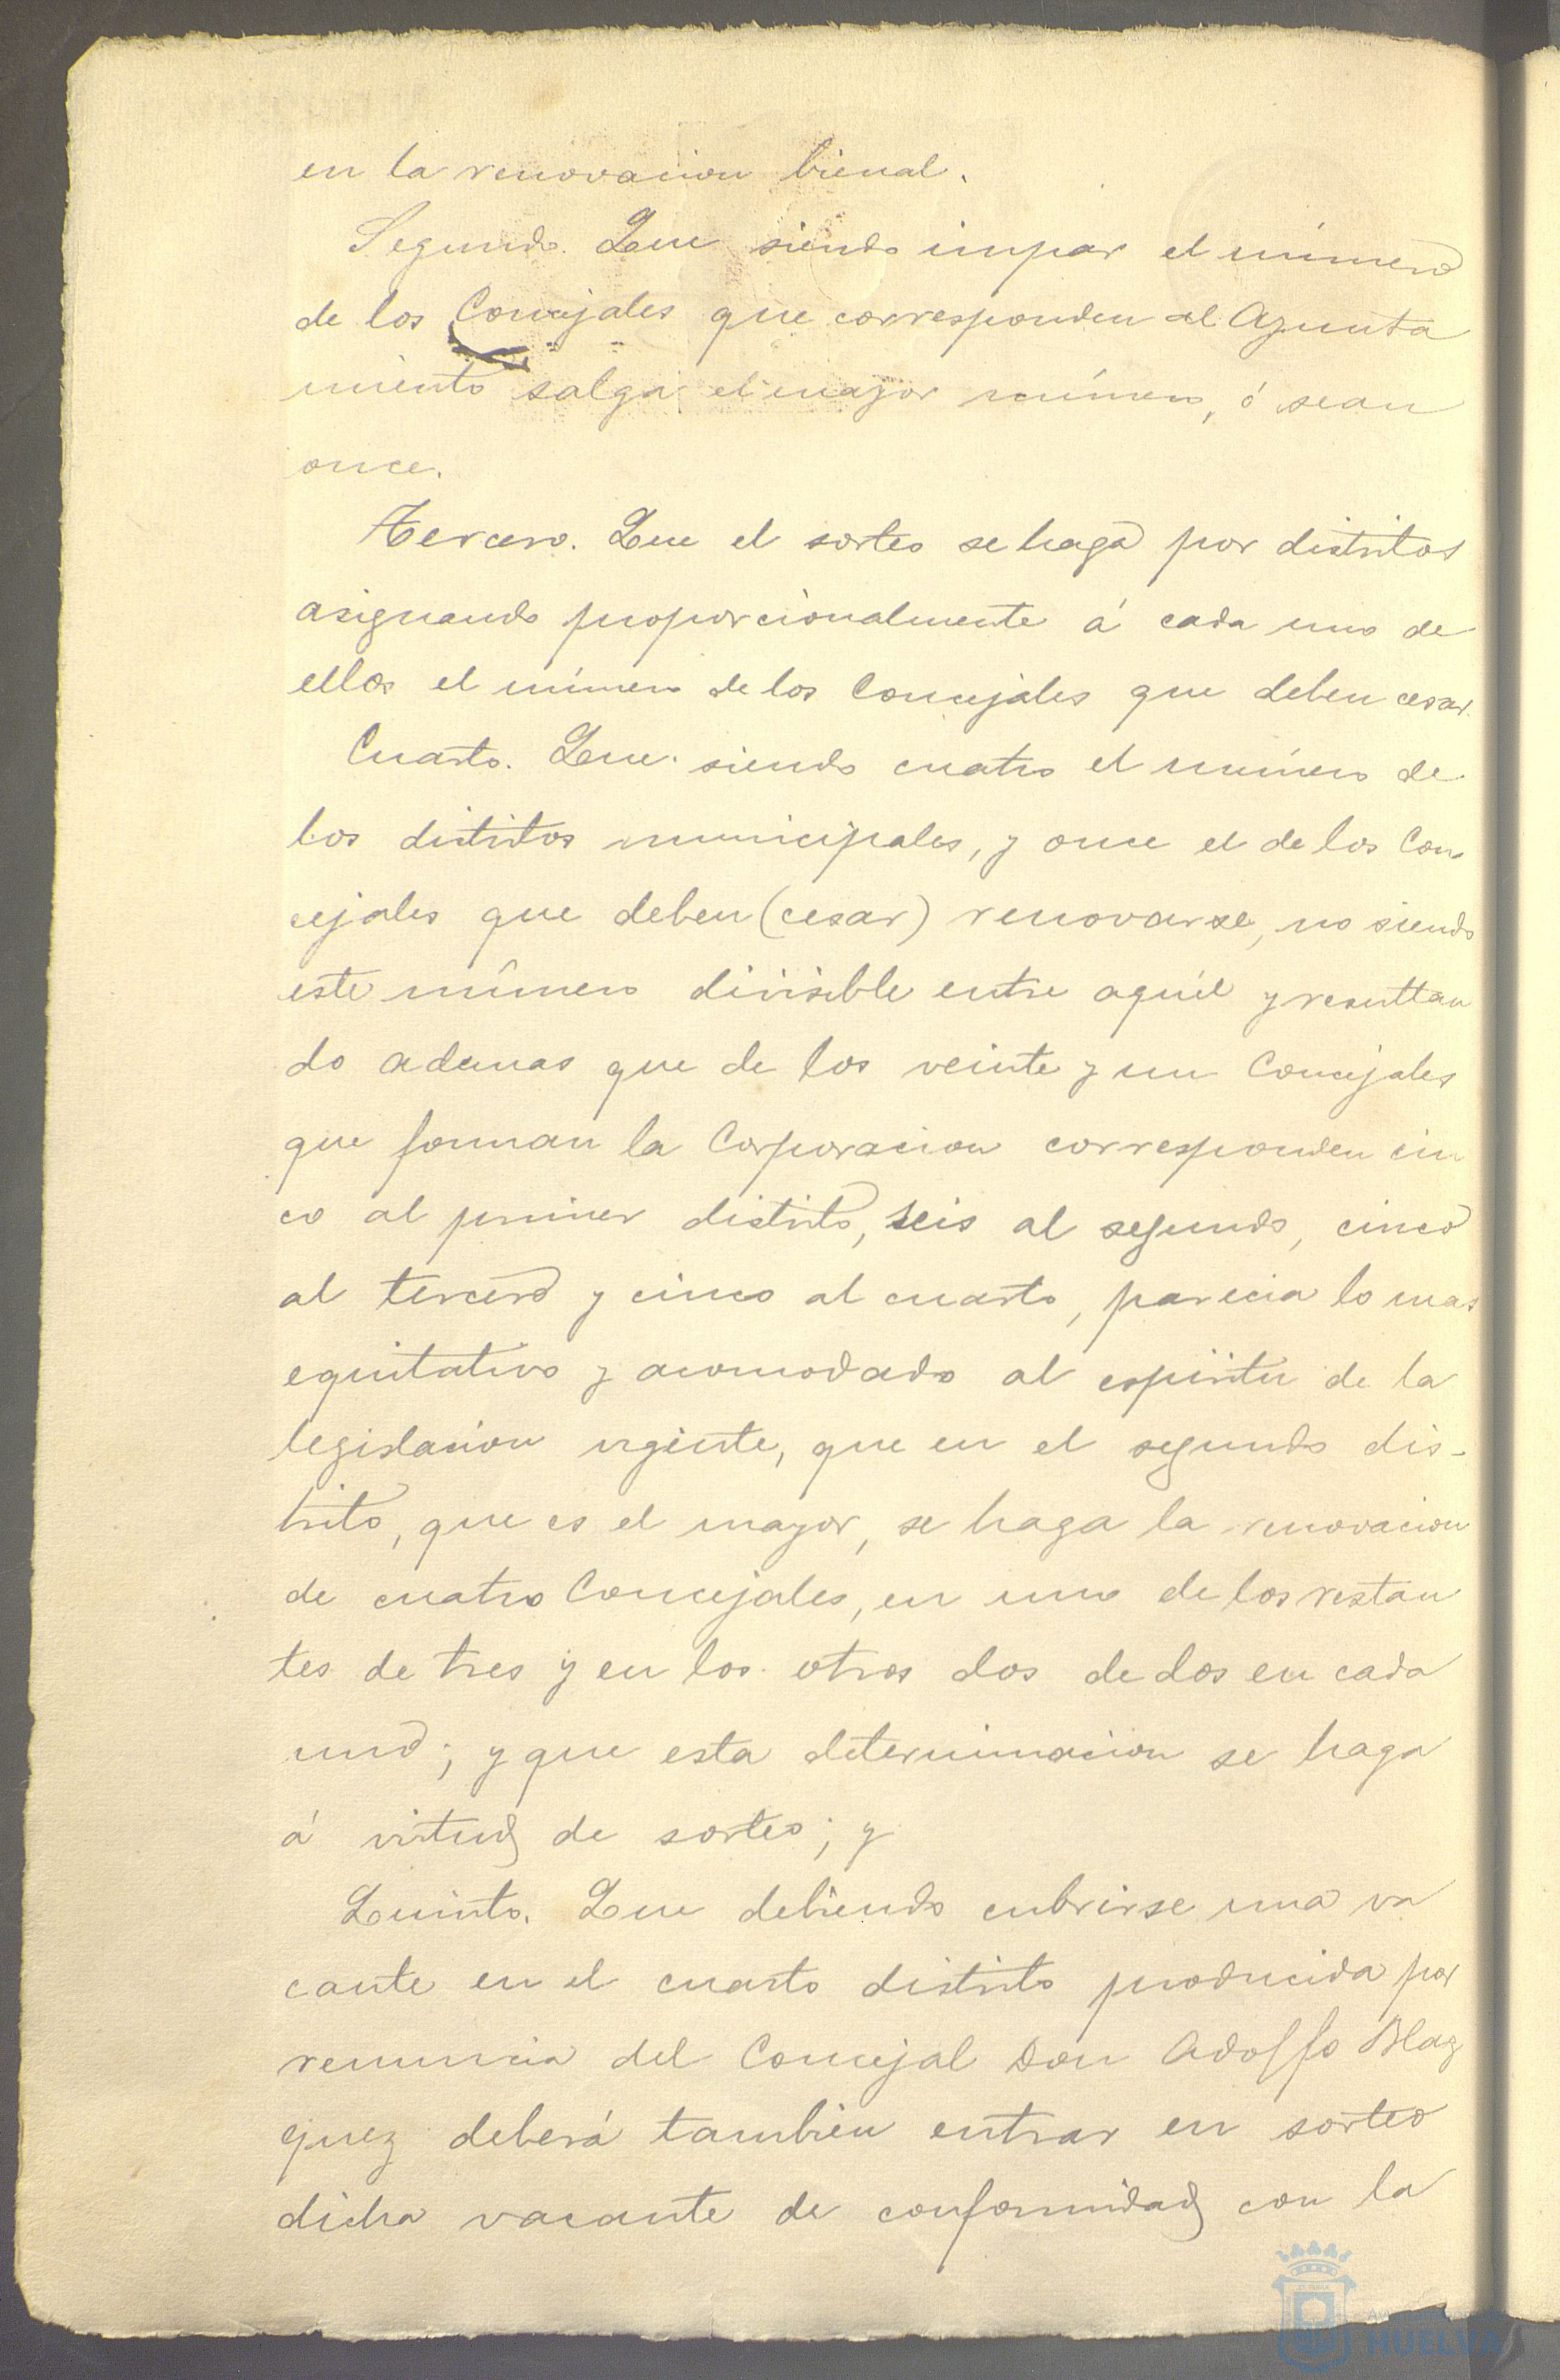 en la renovacion bienal.
Segundo. Que siendo impar el número
de los Concejales que corresponden al Ayunta
miento salga el mayor número, ó sean
once.
Tercero. Que el sorteo se haga por distritos
asignando proporcionalmente á cada uno de
ellos el número de los Concejales que deben cesar.
Cuarto. Que siendo cuatro el número de
los distritos municipales, y once el de los Con-
cejales que deben (cesar) renovarse, no siendo
este número divisible entre aquél y resultan
do ademas que de los veinte y un Concejales
que forman la Corporacion corresponden cin
co al primer distrito, seis al segundo, cinco
al tercero y cinco al cuarto, parecia lo mas
equitativo y acomodado al espíritu de la
legislacion vigente, que en el segundo dis-
trito, que es el mayor, se haga la renovacion
de cuatro Concejales, en uno de los restan
tes de tres y en los otros dos de dos en cada
uno; y que esta determinacion se haga
á virtud de sorteo; y
Quinto. Que debiendo cubrirse una va
cante en el cuarto distrito producida por
renuncia del Concejal Don Adolfo Blaz
quez deberá tambien entrar en sorteo
dicha vacante de conformidad con la
HUELVA